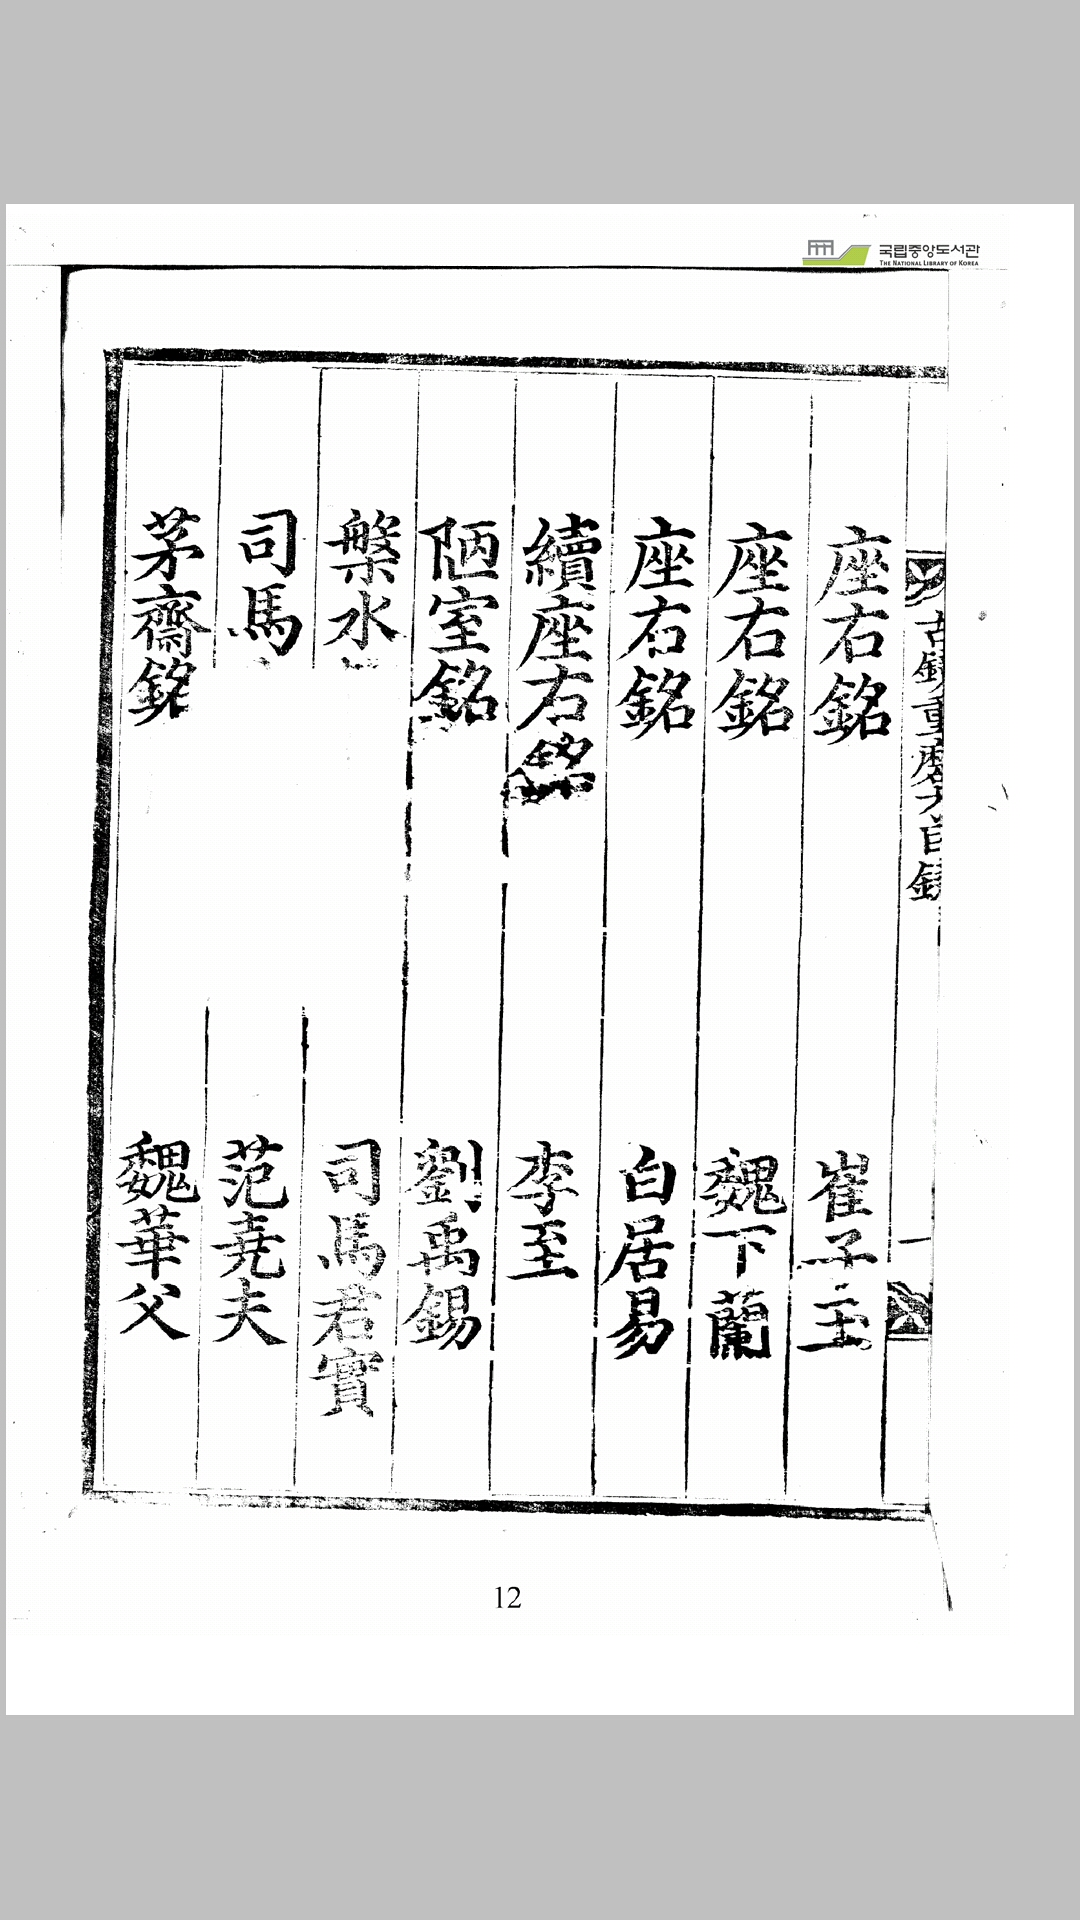 국립중앙도서관
THE NATIONAL LIBRARY OF KOREA
座右銘 崔子玉
座右銘 魏下蘭
座右銘 白居易
續座右銘 李至
陋室銘 劉禹錫
槃水 司馬君實
司馬 范堯夫
茅齋銘 魏華父
12